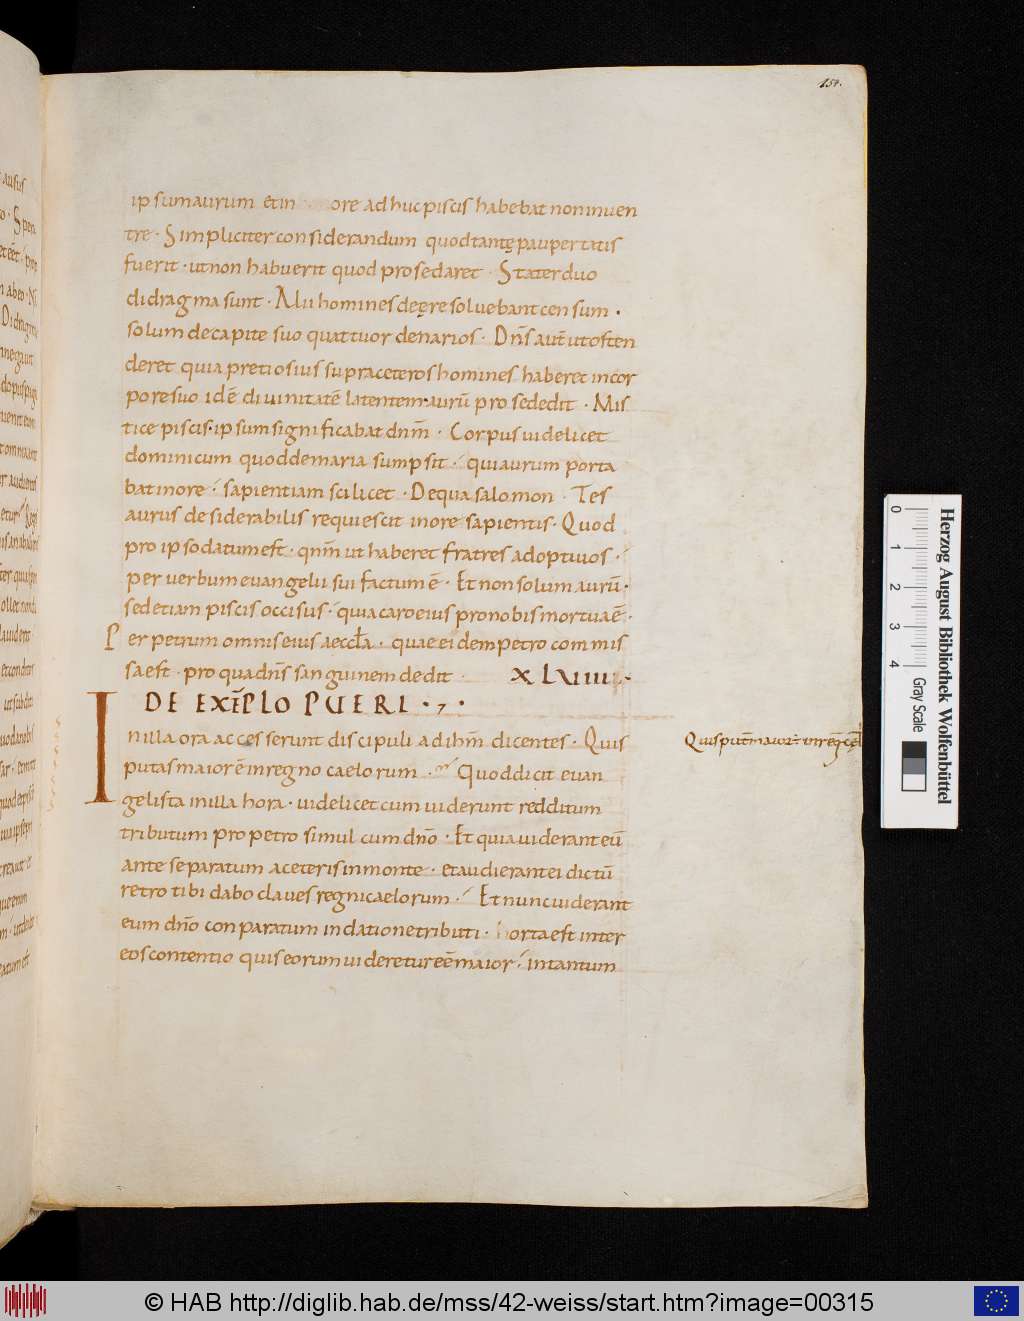 154.
ipsum aurum & in ore adhuc piscis habebat non inuen
tre · Simpliciter considerandum quod tantę paupertatis
fuerit · ut non habuerit quod pro se daret · Stater duo
didragma sunt · Alii homines deęre soluebant censum ·
solum de capite suo quattuor denarios · Dn̄s aut̄ ut osten
deret quia pretiosius supra ceteros homines haberet incor
pore suo idē diuinitatē latentem · aurū pro se dedit · Mis
tice piscis · ipsum significabat dn̄m · Corpus uidelicet
dominicum quod de maria sumpsit · qui aurum porta
bat in ore · sapientiam scilicet · De qua salomon · Tes
aurus desiderabilis requiescit in ore sapientis · Quod
pro ipso datum est · qn̄m ut haberet fratres adoptiuos ·
per uerbum euangelii sui factum ē · Et non solum aurū ·
sed etiam piscis occisus · quia caro eius pro nobis mortua ē ·
Per petrum omnis eius aeccl̄a · quae eidem petro commis
sa est · pro qua dn̄s sanguinem dedit · XLVIIII ·
DE EXĒPLO PUERI · 7 ·
In illa ora accesserunt discipuli ad ihm̄ dicentes · Quis
putas maior ē in regno caelorum · Quod dicit euan
gelista in illa hora · uidelicet cum uiderunt redditum
tributum pro petro simul cum dn̄o · Et quia uiderant eū
ante separatum a ceteris in monte · et audierant ei dictū
retro tibi dabo claues regni caelorum · Et nunc uiderant
eum dn̄o conparatum in datione tributi · horta est inter
eos contentio quis eorum uideretur eē maior · in tantum
Quis putē maior
ausus
Spen
Didragma
0 1 2 3 4
Herzog August Bibliothek Wolfenbüttel
Gray Scale
© HAB http://diglib.hab.de/mss/42-weiss/start.htm?image=00315